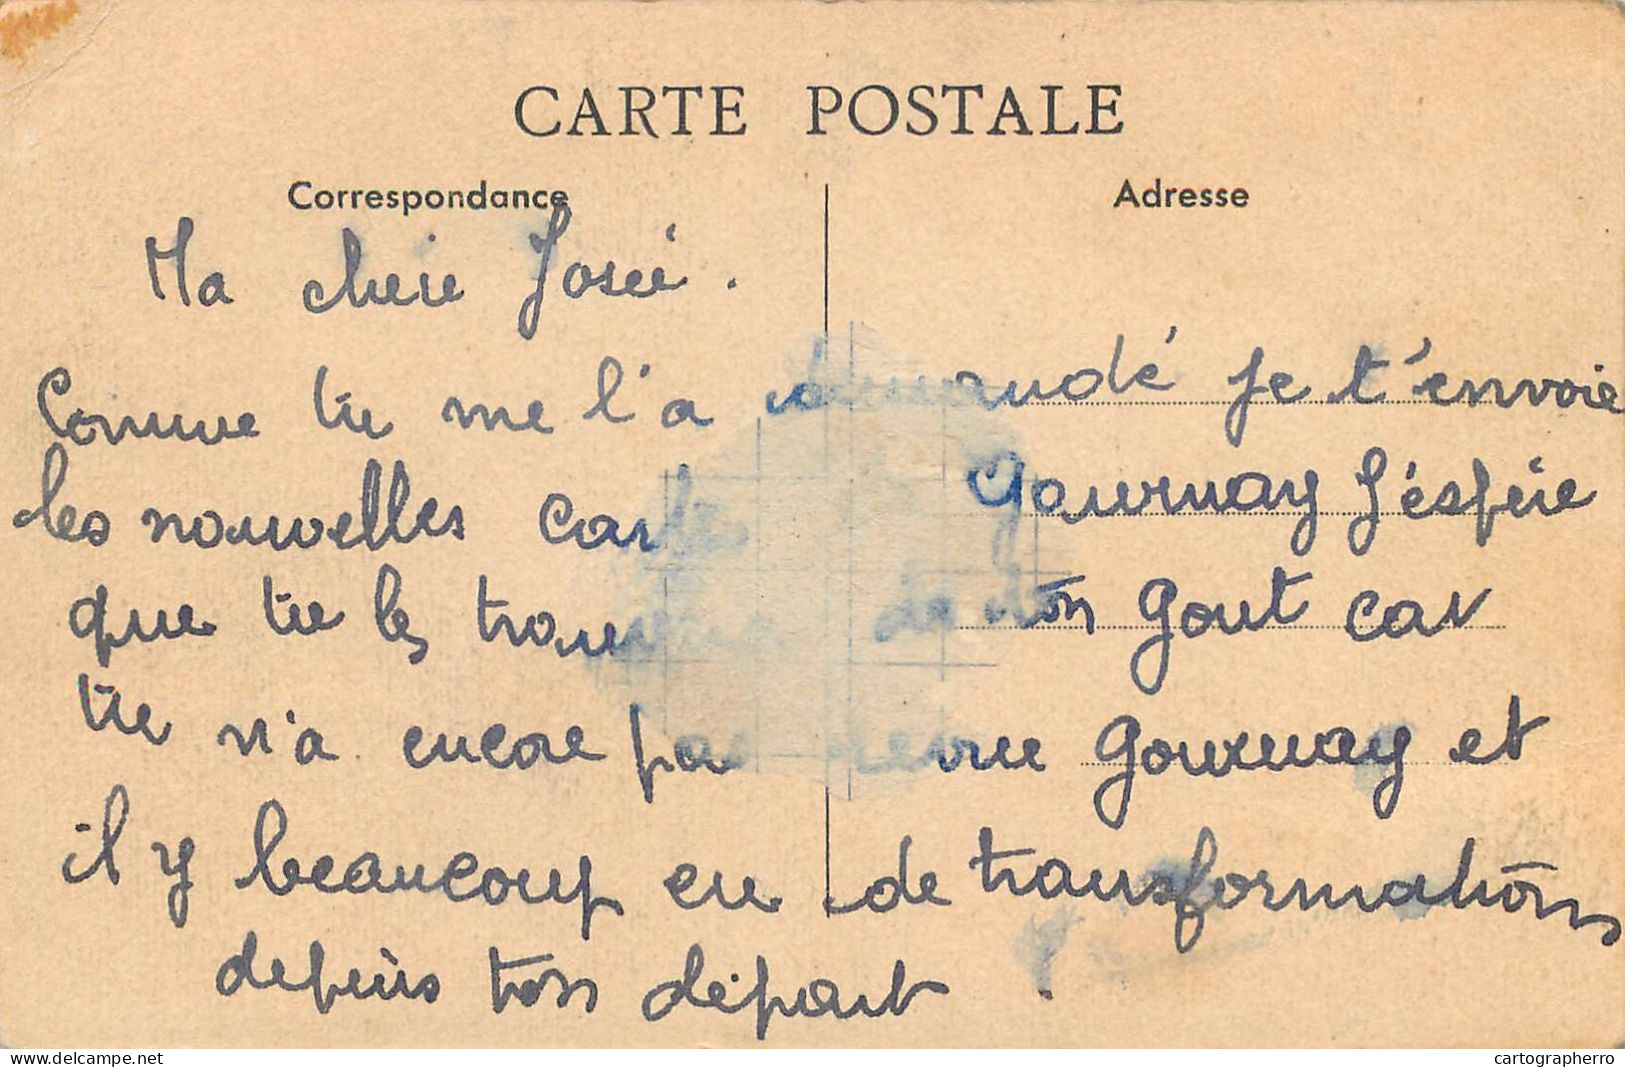 CARTE POSTALE
Correspondance
Adresse
Ma chere Joseé.
Comme tu me l'a demandé je t'envoie
les nouvelles cartes Gournay J'éspére
que tu les trouveras de ton gout car
tu n'a encore pas revu Gournay et
il y beaucoup eu de transformations
depuis ton départ.
cartographerro